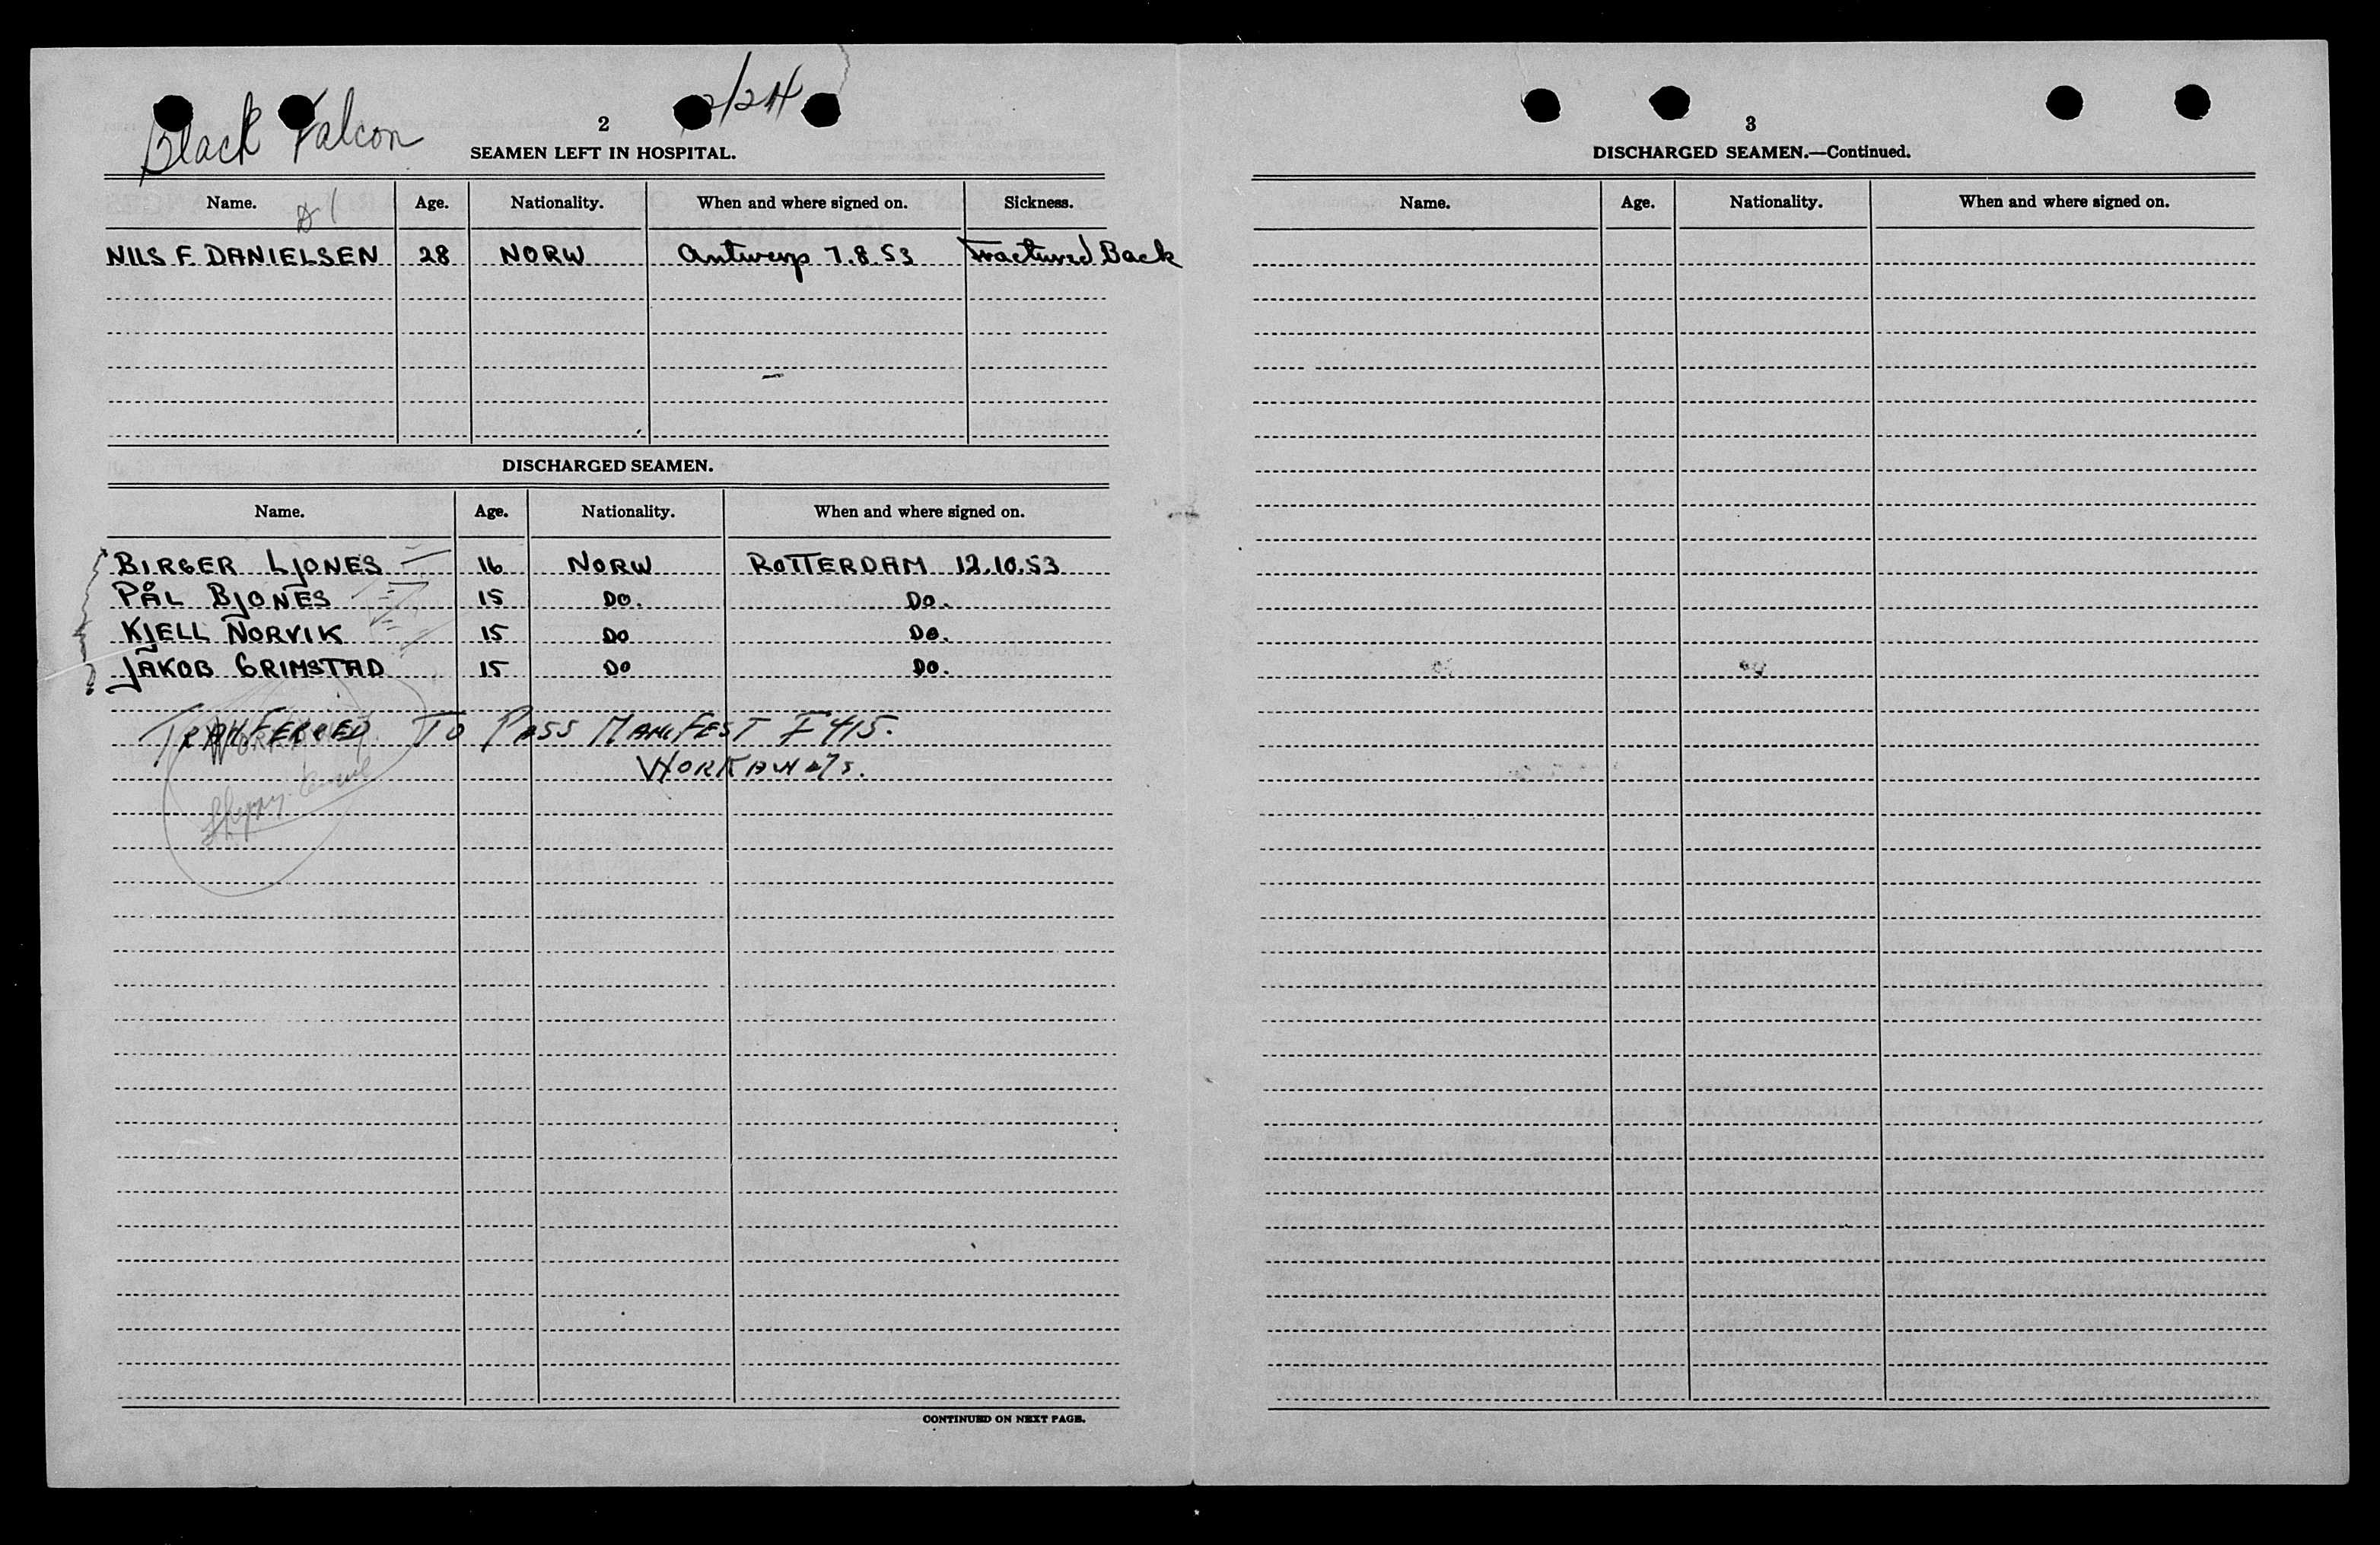 Black Falcon
2/24
2
SEAMEN LEFT IN HOSPITAL.
Name. Age. Nationality. When and where signed on. Sickness.
NILS F. DANIELSEN 28 NORW Antwerp 7.8.53 Fractured Back
DISCHARGED SEAMEN.
Name. Age. Nationality. When and where signed on.
BIRGER LJONES 16 NORW ROTTERDAM 12.10.53
PÅL BJONES 15 DO. DO.
KJELL NORVIK 15 DO DO.
JAKOB GRIMSTAD 15 DO DO.
TRANFERRED TO PASS MANIFEST I 415.
WORKAWAYS.
CONTINUED ON NEXT PAGE.
3
DISCHARGED SEAMEN.—Continued.
Name. Age. Nationality. When and where signed on.